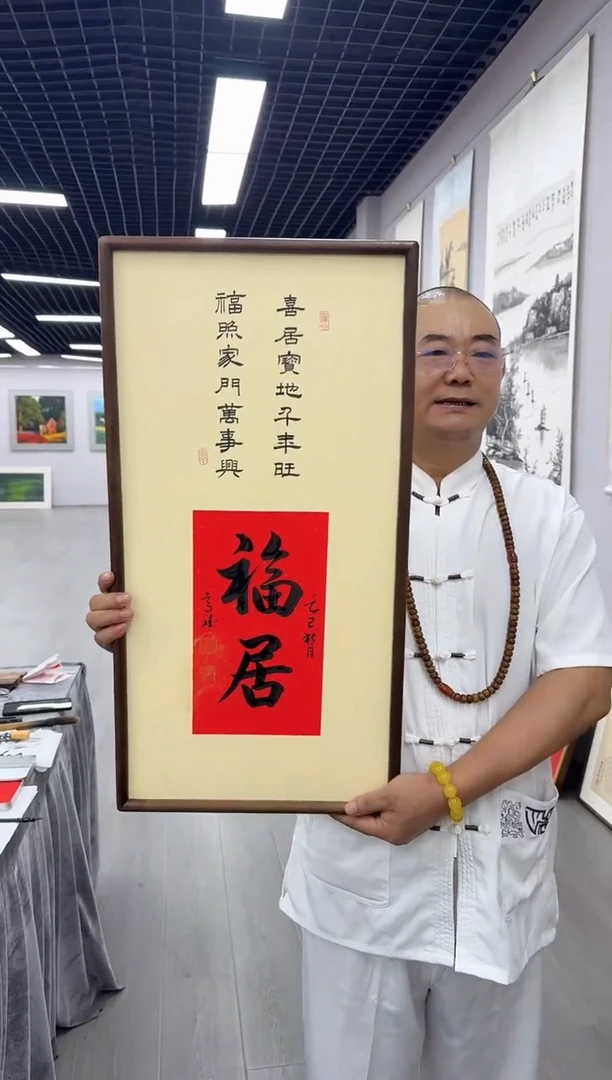 喜居寶地千年旺
福照家門萬事興
福居
乙巳秋月